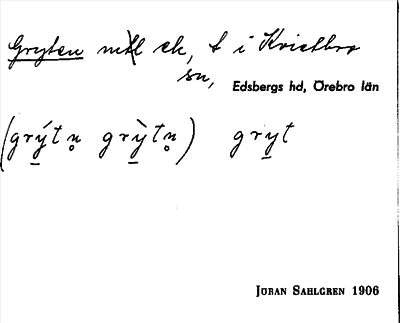 Gryten ek, t i Kvistbro
sn,
Edsbergs hd, Örebro län
(grýtn grỳtn) gryt
JÖRAN SAHLGREN 1906